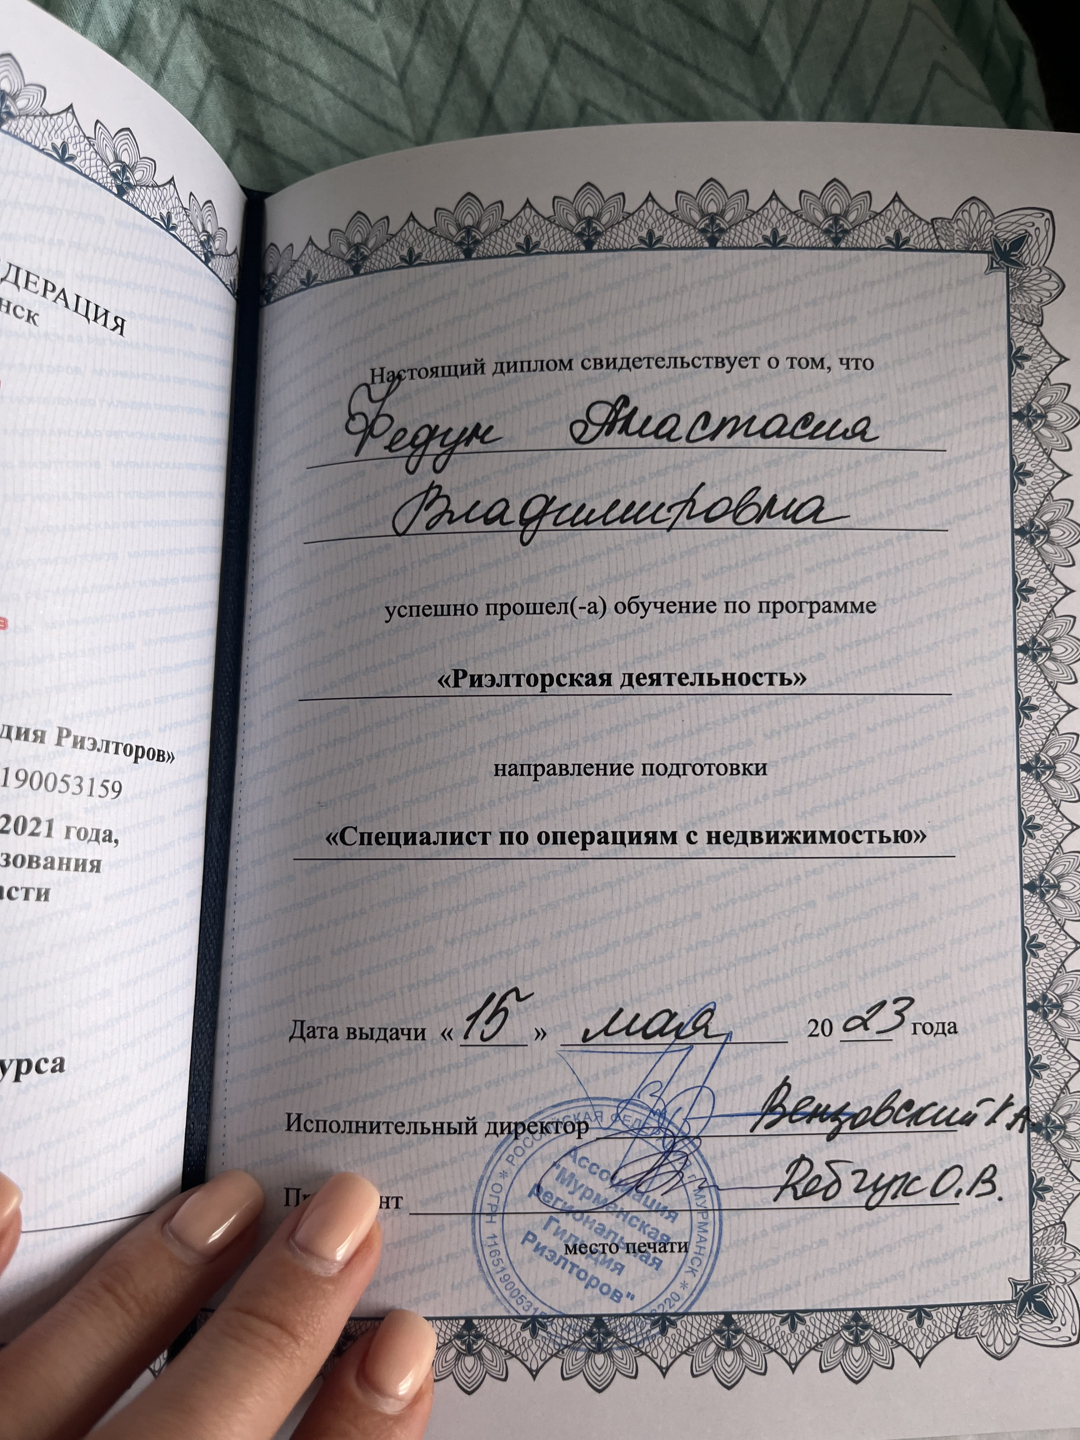 ДЕРАЦИЯ
нск
дия Риэлторов»
190053159
2021 года,
зования
асти
урса
Настоящий диплом свидетельствует о том, что
Федун Анастасия
Владимировна
успешно прошел(-а) обучение по программе
«Риэлторская деятельность»
направление подготовки
«Специалист по операциям с недвижимостью»
Дата выдачи « 15 » мая 20 23 года
Исполнительный директор Венцовский К А
нт Ребчук О.В.
место печати
Ассоциация
"Мурманская
региональная
Гильдия
Риэлторов"
РОССИЙСКАЯ ФЕДЕРАЦИЯ г. МУРМАНСК
ОГРН 116519005315